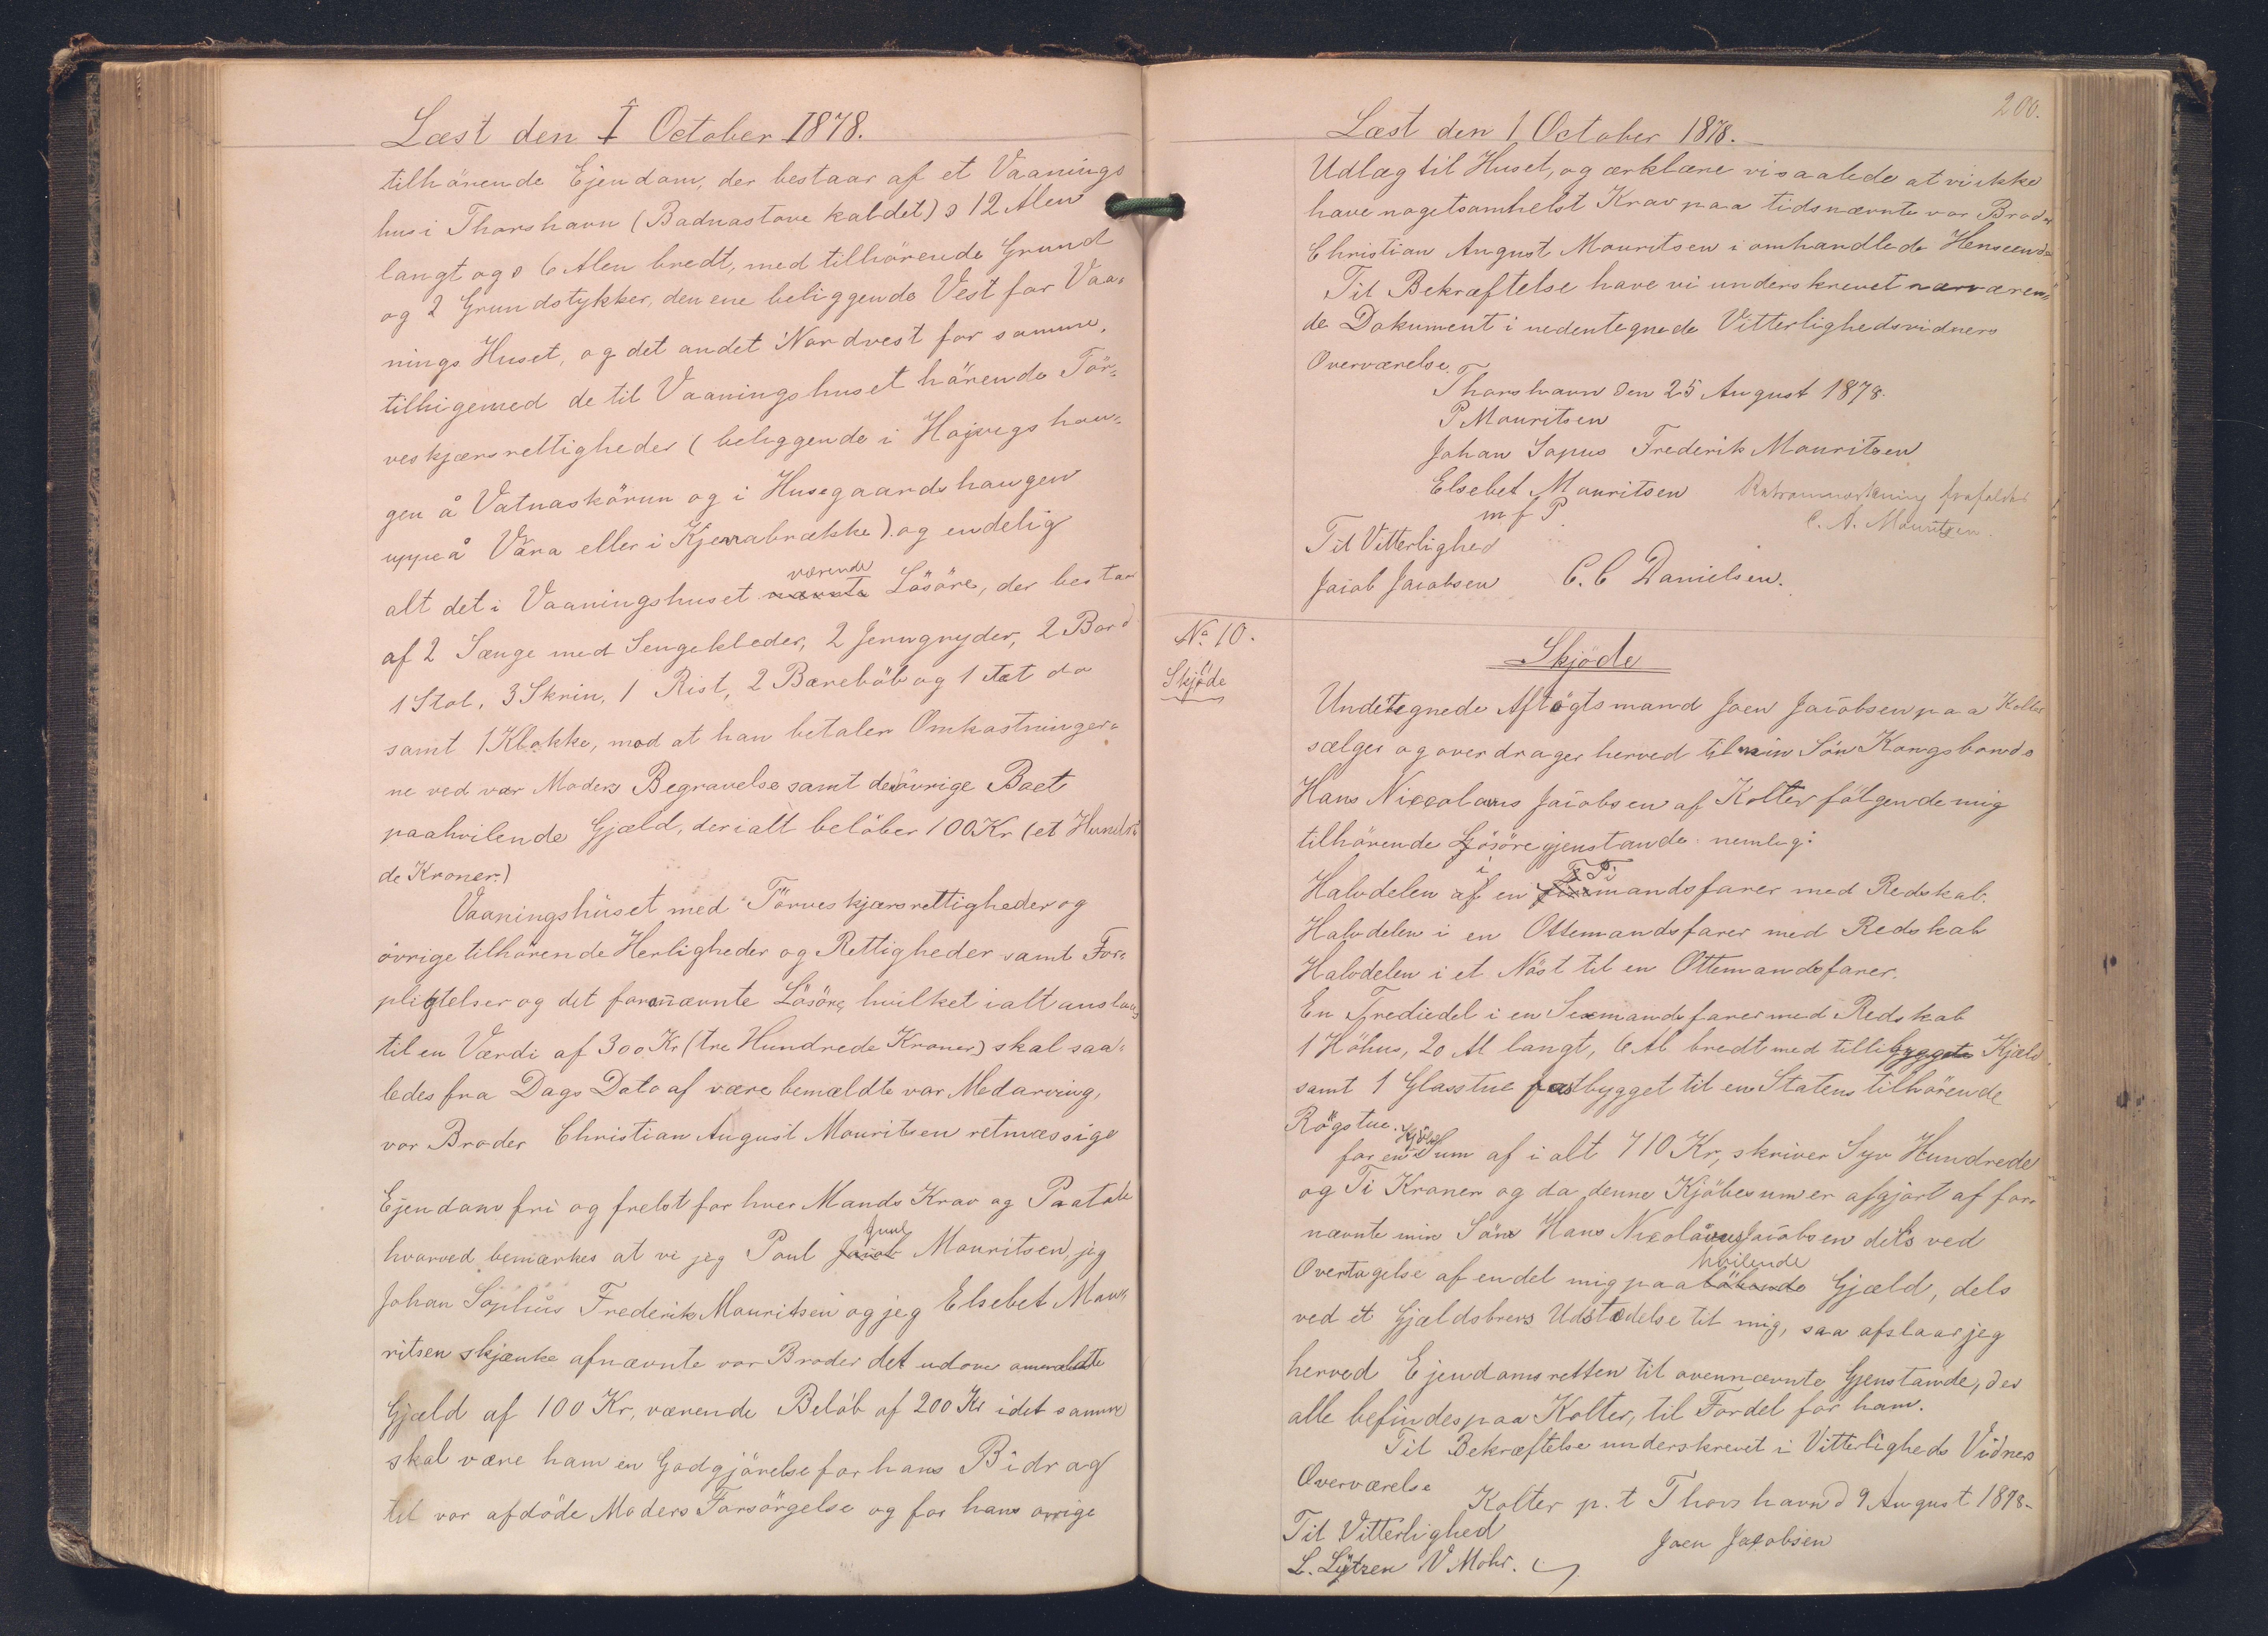 Læst den 1 October 1878.
tilhörende Ejendom, der bestaar af et Vaanings
hus i Thorshavn (Badnastove kaldet) s 12 Alen
langt og s 6 Alen bredt, med tilhörende Grund
og 2 Grundstykker, den ene beliggende Vest for Vaa-
nings Huset, og det andet Nordvest for samme,
tilligemed de til Vaaningshuset hörende Tör-
veskjærsrettigheder (beliggende i Hojvigs hau-
gen å Vatnaskörun og i Husegaards haugen
uppeå Vara eller i Kjerrabrekke) og endelig
alt det i Vaaningshuset nævnte værende Lösöre, der bestaar
af 2 Senge med Sengekleder, 2 Jerngryder, 2 Bord
1 Stol, 3 Skrin, 1 Rist, 2 Bæreböb og 1 Fæt do
samt 1 Klokke, mod at han betaler Omkostninger-
ne ved vor Moders Begravelse samt den övrige Boet
paahvilende Gjæld, der ialt belöber 100 Kr (et Hundre-
de Kroner.)
Vaaningshuset med Törveskjærsrettigheder og
övrige tilhörende Herligheder og Rettigheder samt For-
pligtelser og det forannævnte Lösöre, hvilket ialt anslaaes
til en Værdi af 300 Kr (tre Hundrede Kroner) skal saa-
ledes fra Dags Dato af være bemældte vor Medarving,
vor Broder Christian August Mouritsen retmæssige
Ejendom fri og frelst for hver Mands Krav og Paatale
hvorved bemærkes at vi jeg Poul Jacob Juul Mouritsen, jeg
Johan Sophus Frederik Mouritsen og jeg Elsebet Mou-
ritsen skjænke afnævnte vor Broder det udover ommeldte
Gjæld af 100 Kr, værende Belöb af 200 Kr idet samme
skal være ham en Godgjörelse for hans Bidrag
til vor afdöde Moders Forsörgelse og for hans övrige
200.
Læst den 1 October 1878.
Udlæg til Huset, og ærklære vi saalede at vi ikke
have nogetsomhelst Krav paa tidsnævnte vor Broder
Christian August Mouritsen i omhandlede Henseende
Til Bekræftelse have vi underskrevet nærværen-
de Dokument i nedentegnede Vitterlighedsvidners
Overværelse.
Thorshavn den 25 August 1878.
P Mouritsen
Johan Sopus Frederik Mouritsen
Elsebet Mouritsen
m f P
frafaldes
C. A. Mouritsen.
Til Vitterlighed
Jacob Jacobsen C. C Danielsen.
No 10.
Skjöde
Skjöde
Undetegnede Aftögtsmand Joen Jacobsen paa Kolter
sælger og overdrager herved til min Sön Kongsbonde
Hans Niccolaus Jacobsen af Kolter fölgende mig
tilhörende Lösöregjenstande: nemlig:
Halvdelen af i en Ti mandsfarer med Redskab.
Halvdelen i en Ottemandsfarer med Redskab
Halvdelen i et Nöst til en Ottemandsfarer.
En Trediedel i en Sexmandsfarer med Redskab
1 Höhus, 20 Al langt, 6 Al bredt med tillibyggete Kjæld
samt 1 Glasstue fastbygget til en Statens tilhörende
Rögstue.
for en Kjöbe Sum af i alt 710 Kr, skriver Syv Hundrede
og Ti Kroner og da denne Kjöbesum er afgjort af for-
nævnte min Sön Hans Nicolaus Jacobsen dels ved
Overtagelse af en del mig paa löbende hvilende Gjæld, dels
ved et Gjældsbrevs Udstedelse til mig, saa afstaar jeg
herved Ejendomsretten til ovennævnte Gjenstande, der
alle befindes paa Kolter, til Fordel for ham.
Til Bekræftelse underskrevet i Vitterligheds Vidners
Overværelse
Kolter p. t Thorshavn d 9 August 1878-
Til Vitterlighed
Joen Jacobsen
L. Lützen V Mohr.